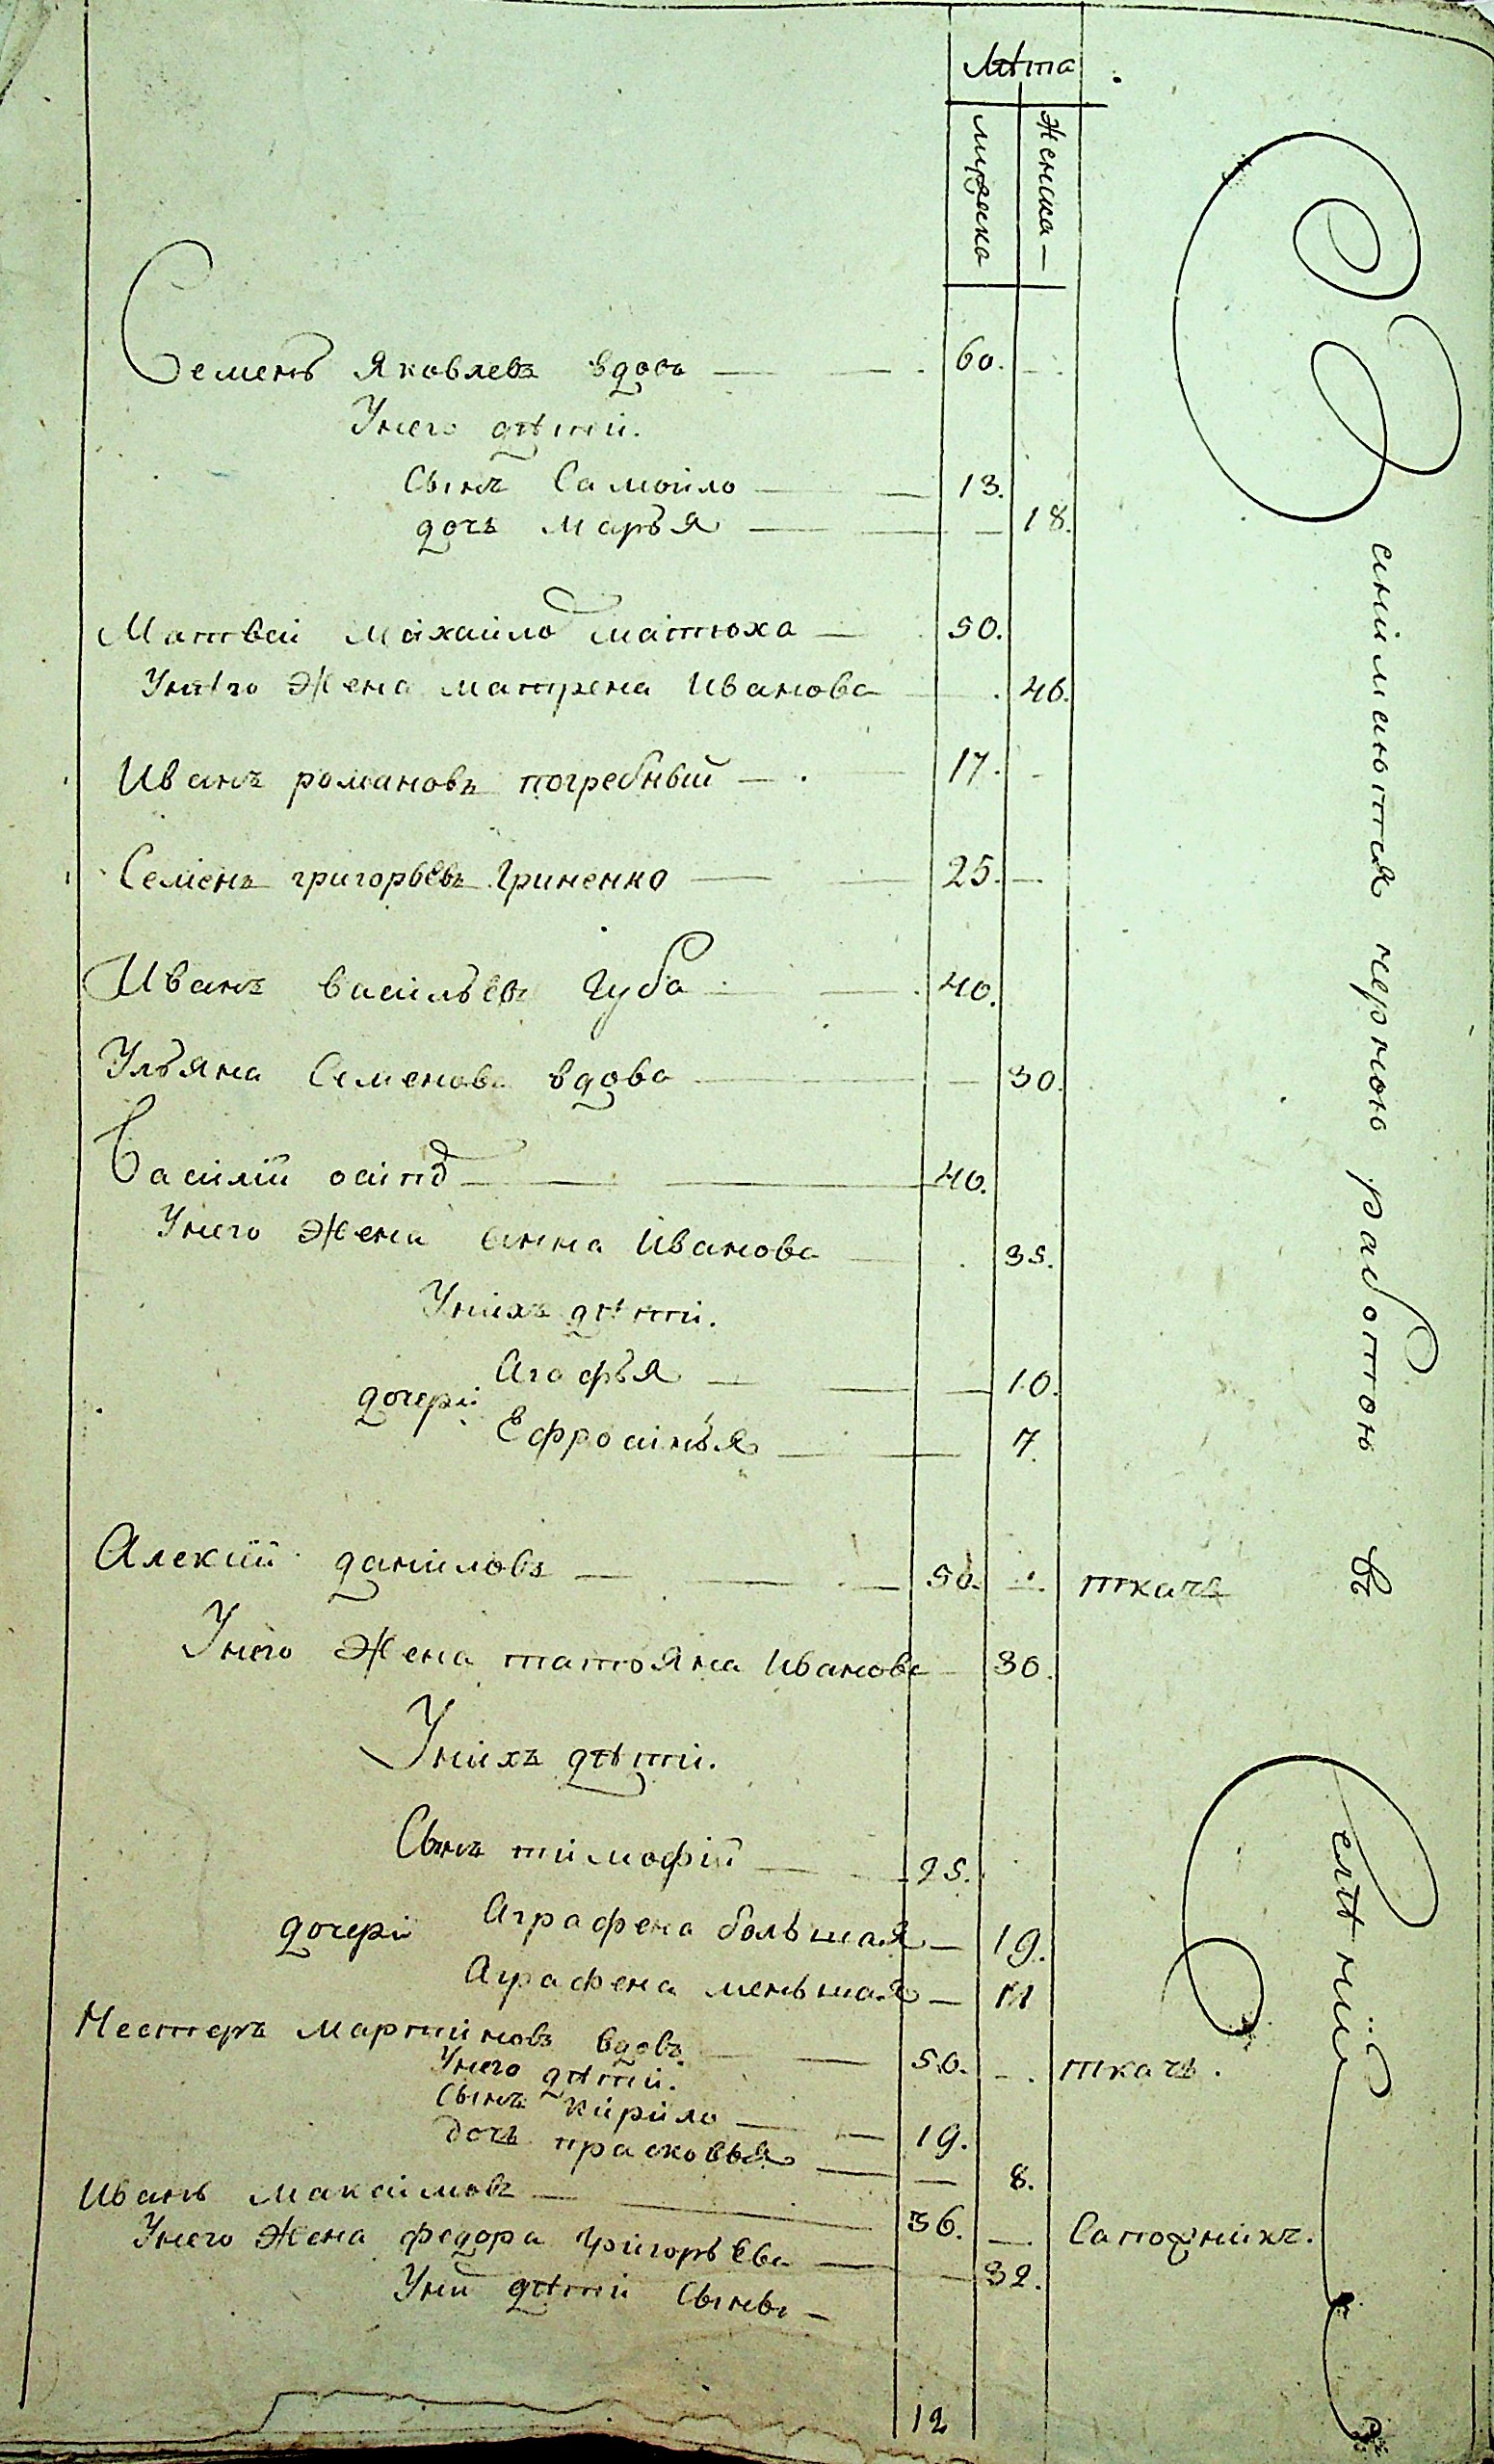 Лѣта
мужска
женска —
Семенъ Яковлевъ вдовъ — — 60.
Унего дѣтїй.
Сынъ Самойло — — 13.
дочъ Марья — — — 18.
Матвей Михайло Матюха — 50.
Унѣго жена матрена Иванова — 46.
Иванъ романовъ погребный — 17.
Семенъ григорьевъ Гриненко — — 25. —
Иванъ васильев Губа — 40.
Ульяна Семенова вдова — — 30.
Василїй осипъ — — 40.
Унего жена анна Иванова — 35.
Унихъ дѣтїй.
Агафья — — — 10.
дочери
Ефросинья — — 7.
Алексїй даниловъ — — — 50. ткачъ
Унего жена татьяна Иванова — 30.
Унихъ дѣтїй.
Сынъ тимофїй — 25.
дочери Аграфена большая — 19.
Аграфена меньшая — 11
Нестеръ Мартиновъ вдовъ — — 50. — ткачъ.
Унего дѣтїй.
Сынъ Кирило — — 19.
дочъ прасковья — — 8.
Иванъ Максимовъ — — 36. — Сапожникъ.
Унего жена федора Григорьева — — 32.
Уних дѣтїй Сыны —
12
Занимаются черною работою въ
селѣнїй